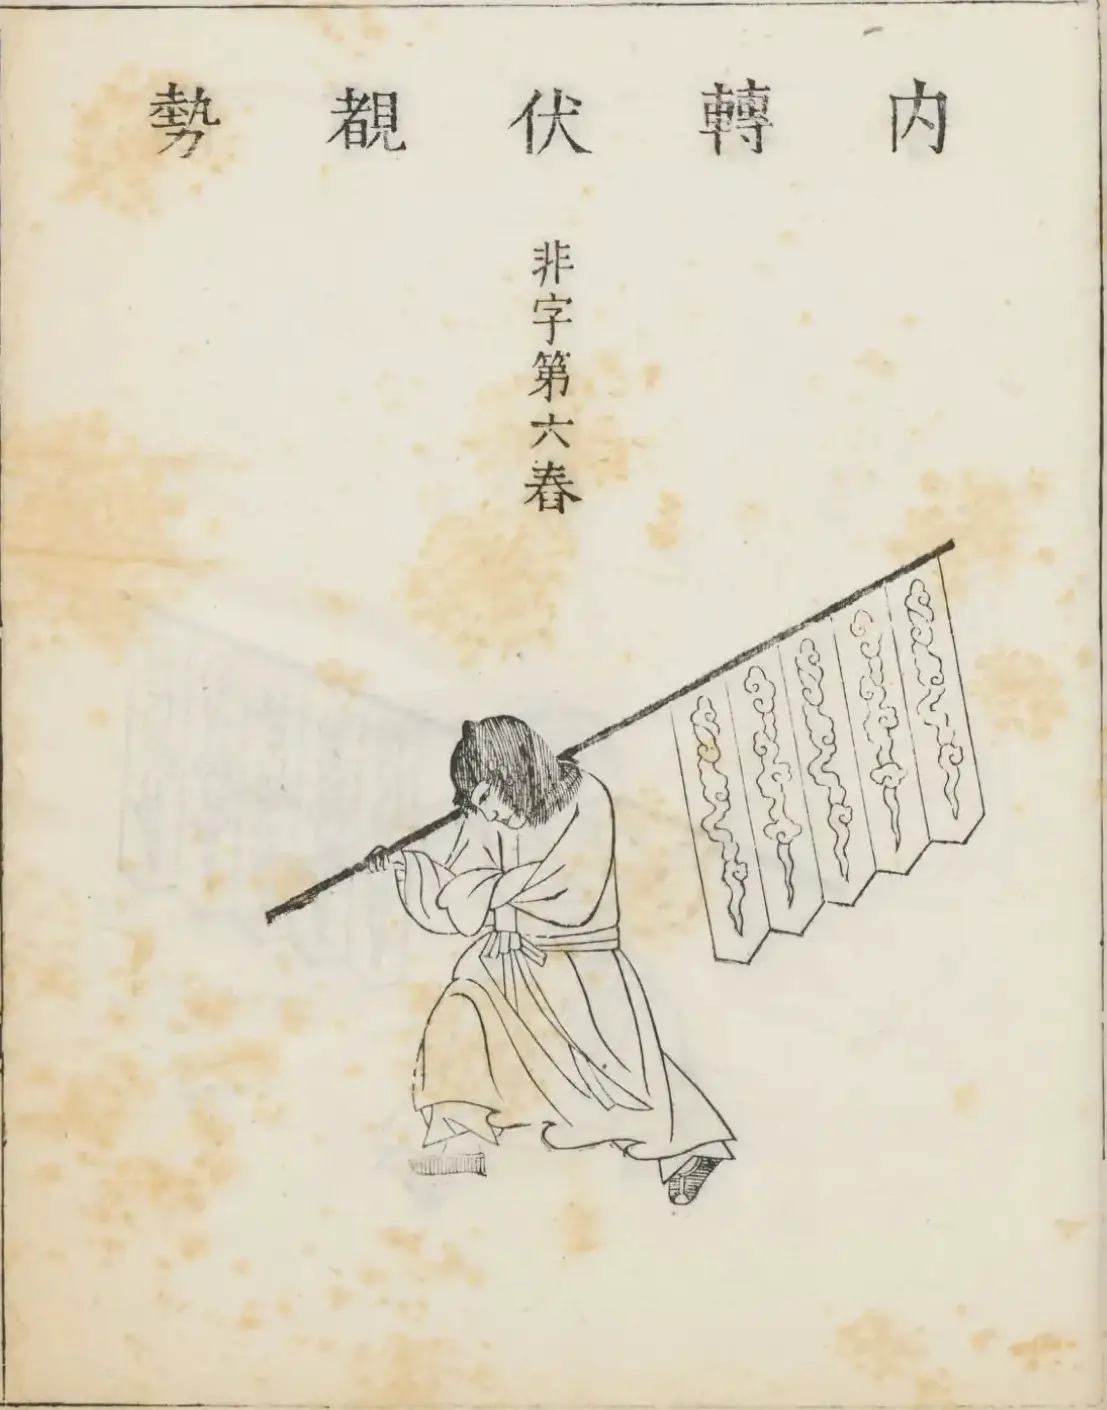 内轉伏覩勢
非字第六舂